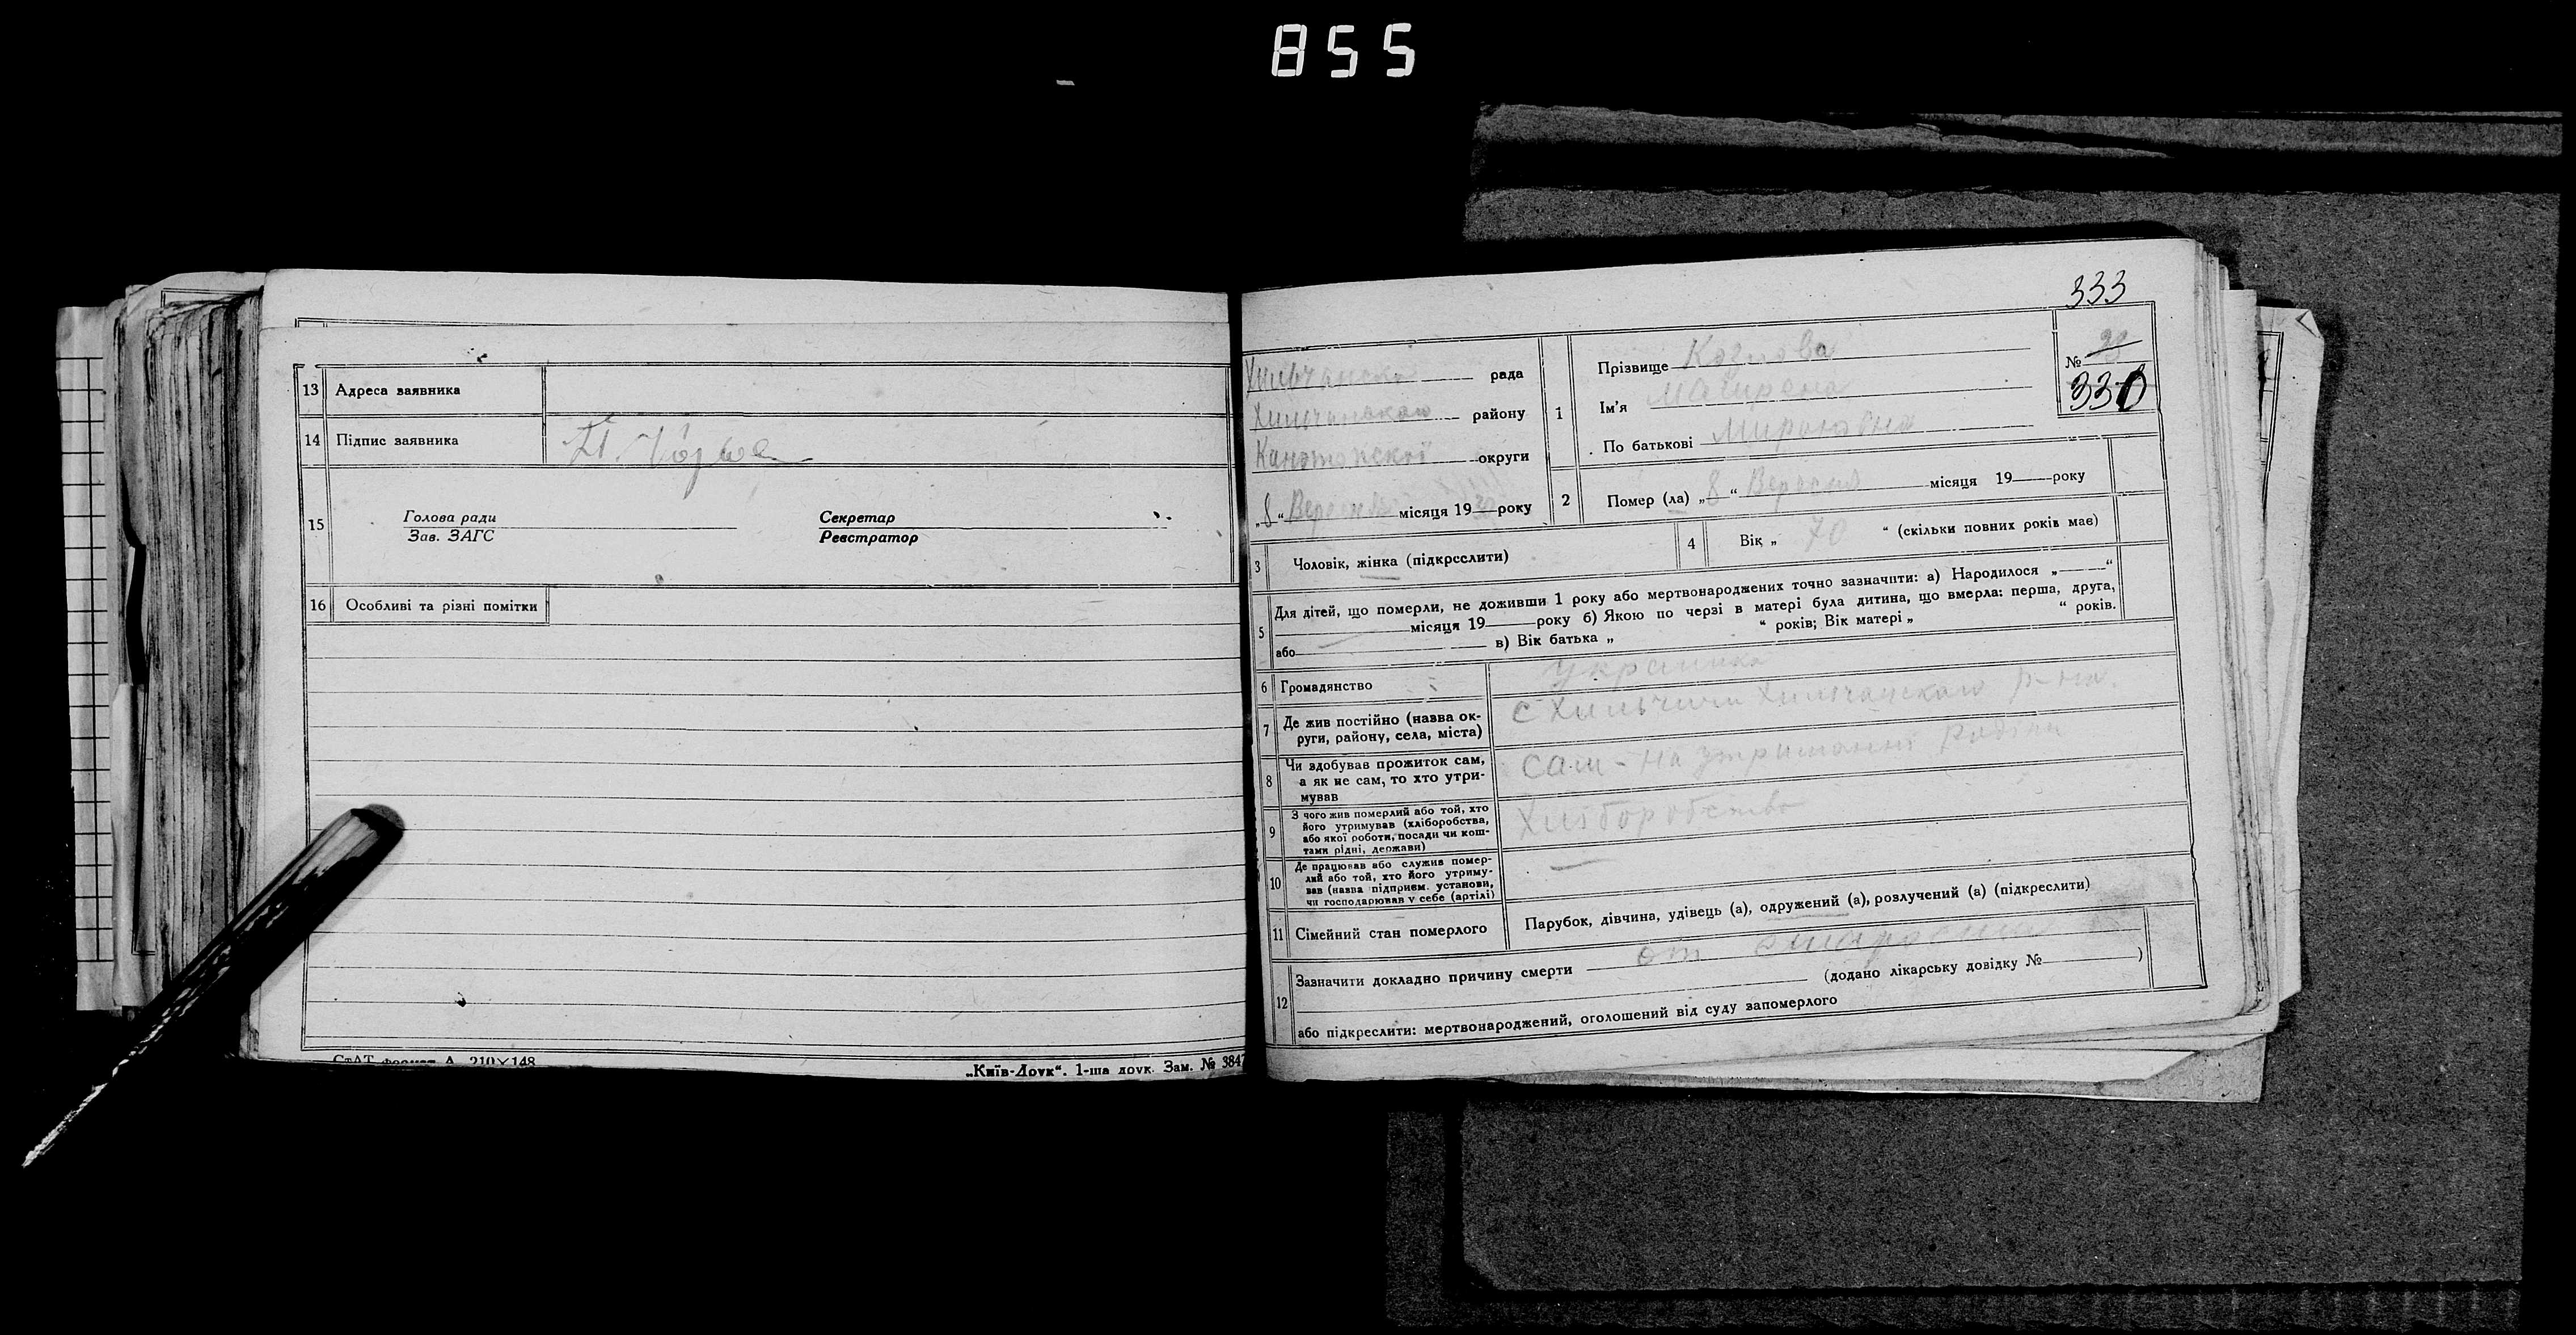 855
13 Адреса заявника
14 Підпис заявника
15 Голова ради
Зав. ЗАГС
Секретар
Реєстратор
16 Особливі та різні помітки
СтАТ формат А 210×148
„Київ-Друк“. 1-ша друк. Зам. № 3847
333
рада
району
округи
„8“ Вересня місяця 19 30 року
1 Прізвище
Ім'я
По батькові Миронович
№ 28
330
2 Помер (ла) „8“ Вересня місяця 19 року
3 Чоловік, жінка (підкреслити)
4 Вік „ 70 “ (скільки повних років має)
5 Для дітей, що померли, не доживши 1 року або мертвонароджених точно зазначити: а) Народилося „ “
місяця 19 року б) Якою по черзі в матері була дитина, що вмерла: перша, друга,
або в) Вік батька „ “ років; Вік матері „ “ років.
6 Громадянство українка
7 Де жив постійно (назва ок-
руги, району, села, міста)
с р-на.
8 Чи здобував прожиток сам,
а як не сам, то хто утри-
мував
сам - на утриманні родини
9 З чого жив померлий або той, хто
його утримував (хліборобства,
або якої роботи, посади чи кош-
тами рідні, держави)
Хліборобство
10 Де працював або служив помер-
лий або той, хто його утриму-
вав (назва підприєм. установи,
чи господарював у себе (артілі)
—
11 Сімейний стан померлого
Парубок, дівчина, удівець (а), одружений (а), розлучений (а) (підкреслити)
12 Зазначити докладно причину смерти от старости
(додано лікарську довідку № )
або підкреслити: мертвонароджений, оголошений від суду запомерлого